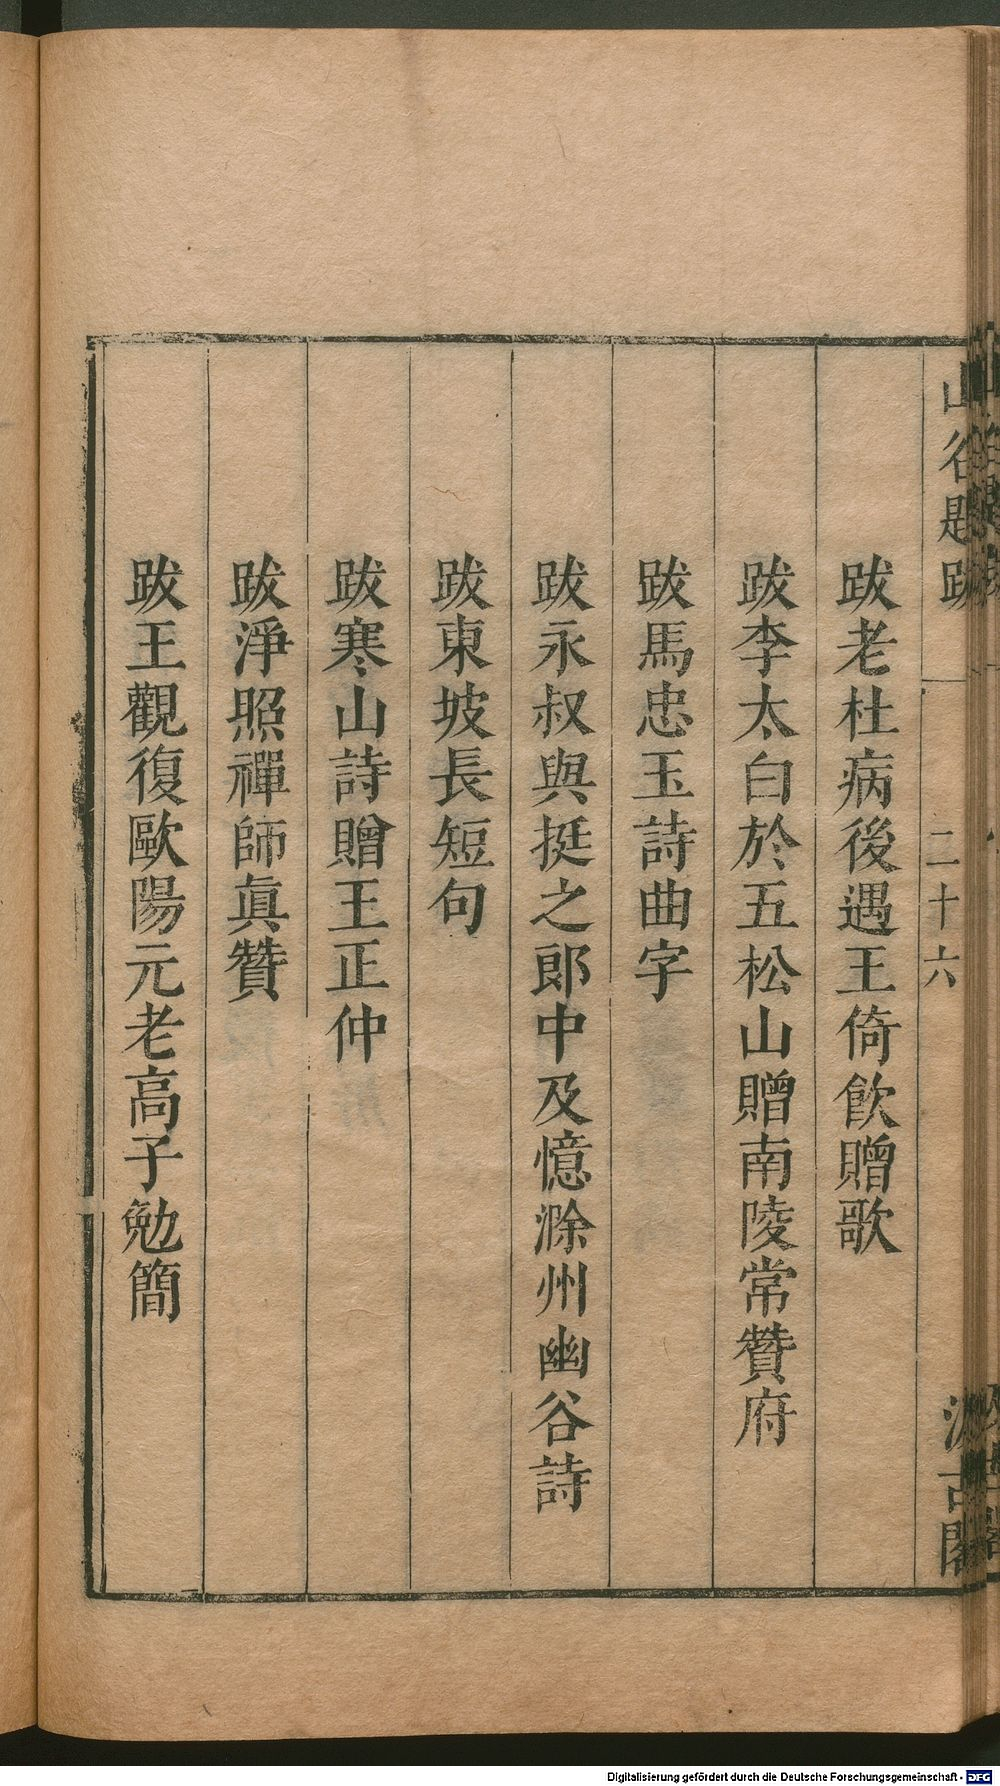 山谷題跋
二十六
汲古閣
跋老杜病後遇王倚飲贈歌
跋李太白於五松山贈南陵常贊府
跋馬忠玉詩曲字
跋永叔與挺之郎中及憶滁州幽谷詩
跋東坡長短句
跋寒山詩贈王正仲
跋淨照禪師眞贊
跋王觀復歐陽元老高子勉簡
Digitalisierung gefördert durch die Deutsche Forschungsgemeinschaft - DFG